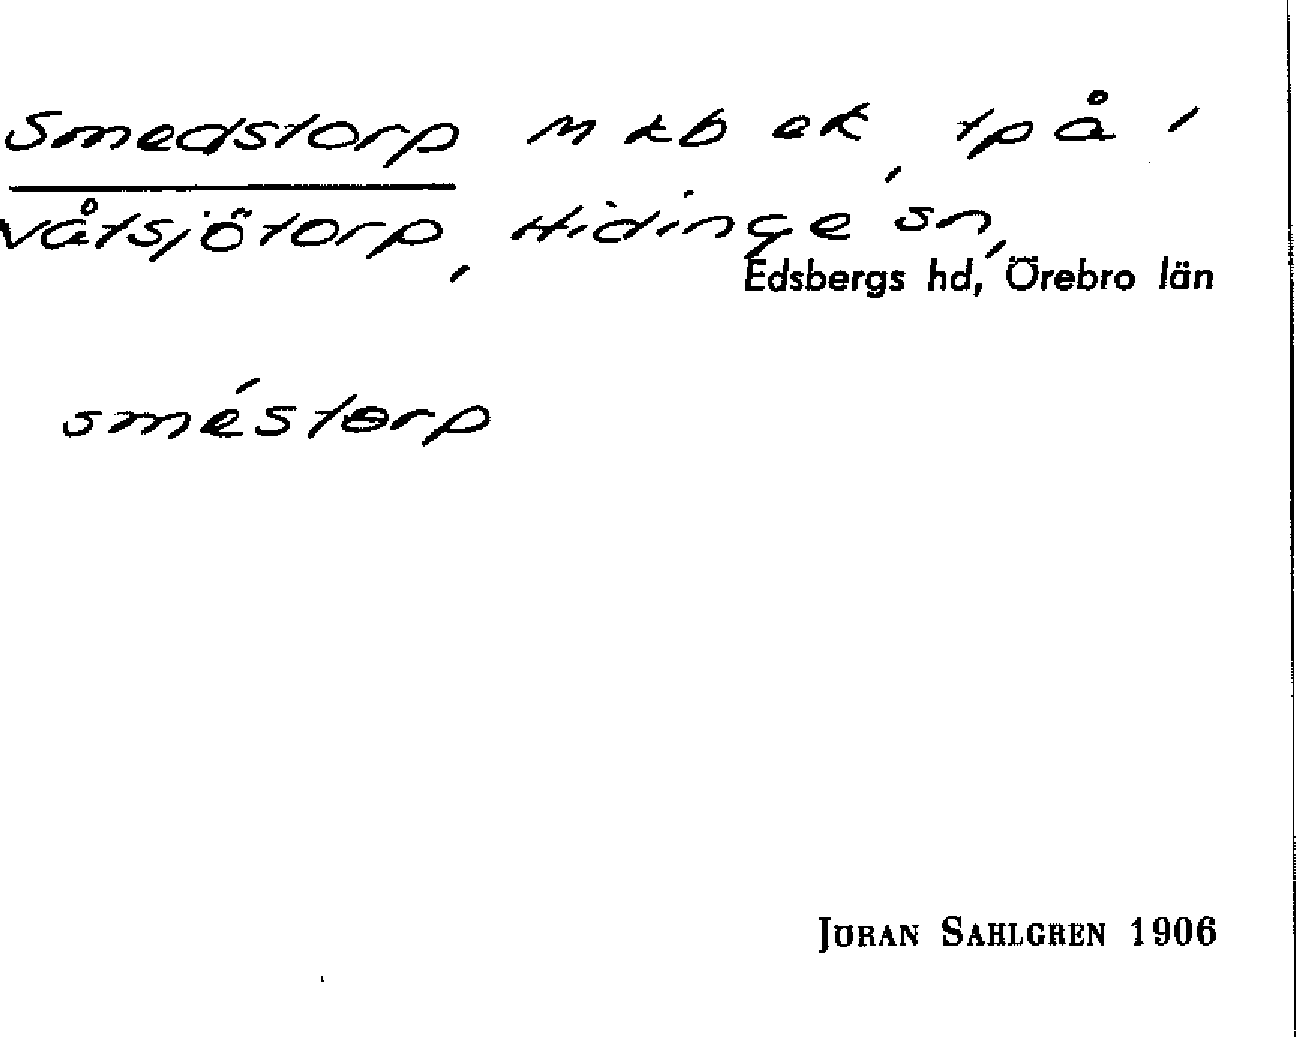 Smedstorp m kb ek, tp å
Våtsjötorp, Hidinge sn,
Edsbergs hd, Örebro län
sméstorp
JÖRAN SAHLGREN 1906